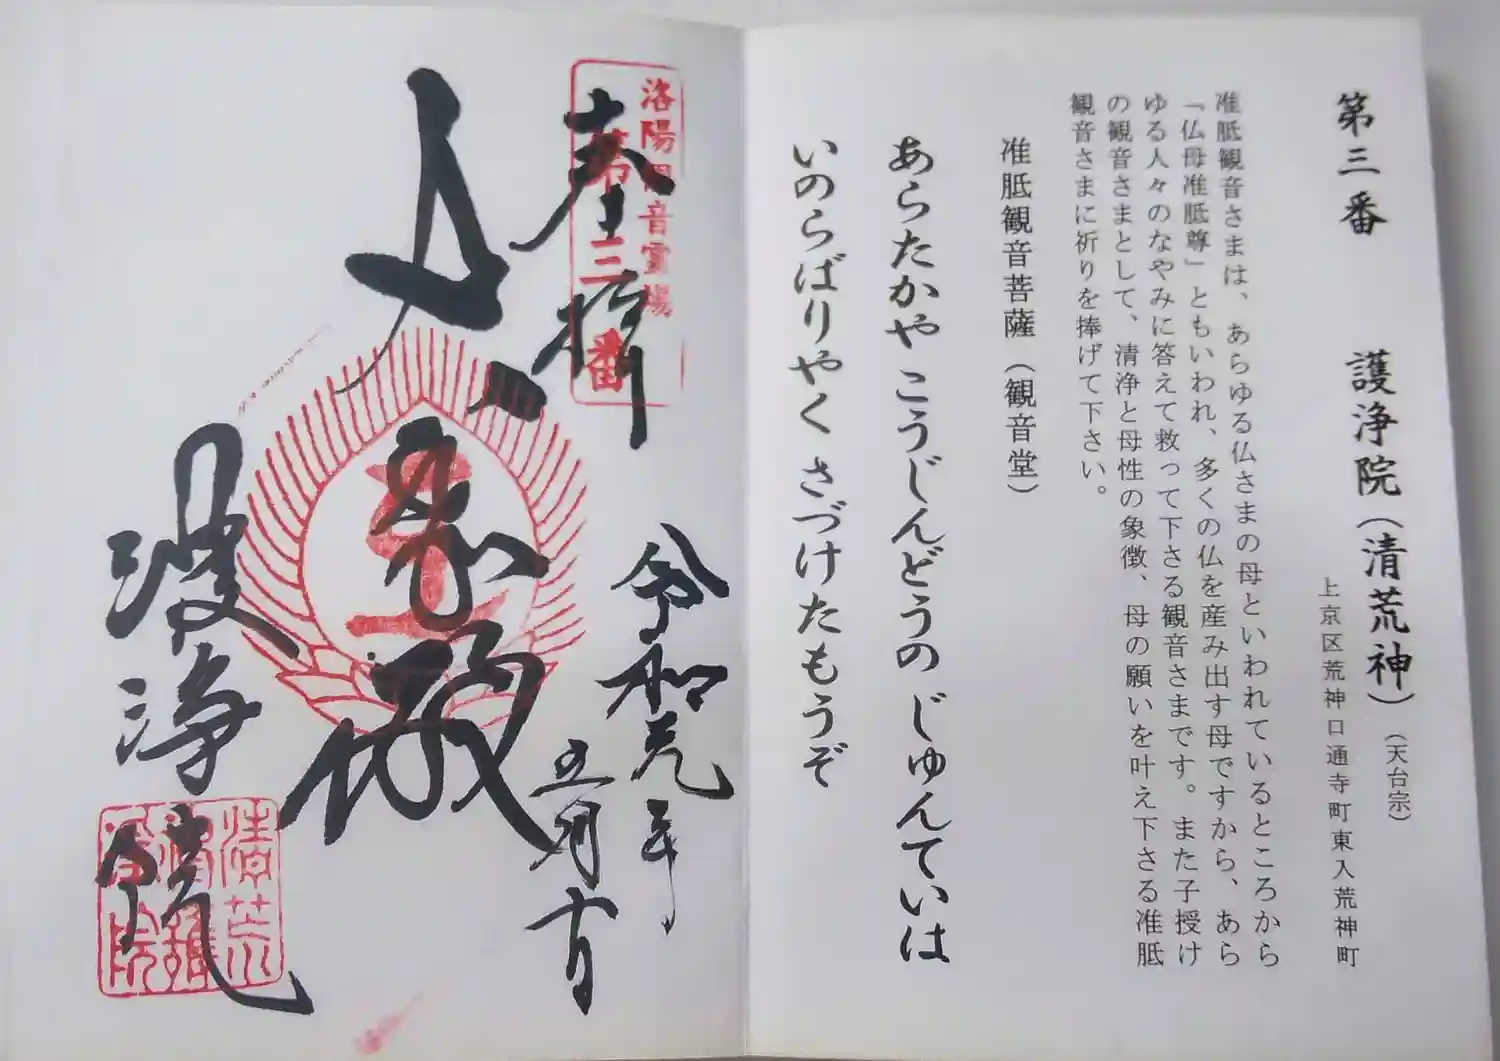 第三番 護浄院(清荒神)(天台宗)
上京区荒神口通寺町東入荒神町
准胝観音さまは、あらゆる仏さまの母といわれているところから
「仏母准胝尊」ともいわれ、多くの仏を産み出す母ですから、あら
ゆる人々のなやみに答えて救って下さる観音さまです。また子授け
の観音さまとして、清浄と母性の象徴、母の願いを叶え下さる准胝
観音さまに祈りを捧げて下さい。
准胝観音菩薩(観音堂)
あらたかや こうじんどうの じゅんていは
いのらばりやく さづけたもうぞ
洛陽観音霊場
第三番
奉拝
令和元年
五月十日
護浄院